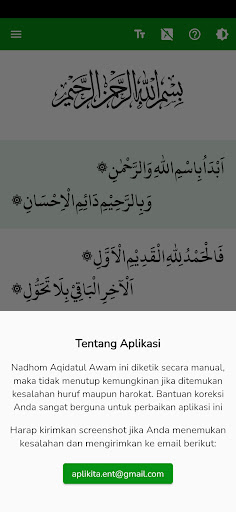 بِسْمِ اللهِ الرَّحْمٰنِ الرَّحِيْمِ
اَبْدَأُ بِاسْمِ اللهِ وَالرَّحْمٰنِ ۞
وَبِالرَّحِيْمِ دَائِمِ الْاِحْسَانِ ۞
فَالْحَمْدُ لِلهِ الْقَدِيْمِ الْاَوَّلِ ۞
اَلْآخِرِ الْبَاقِيْ بِلَا تَحَوُّلِ ۞
Tentang Aplikasi
Nadhom Aqidatul Awam ini diketik secara manual,
maka tidak menutup kemungkinan jika ditemukan
kesalahan huruf maupun harokat. Bantuan koreksi
Anda sangat berguna untuk perbaikan aplikasi ini
Harap kirimkan screenshot jika Anda menemukan
kesalahan dan mengirimkan ke email berikut:
aplikita.ent@gmail.com